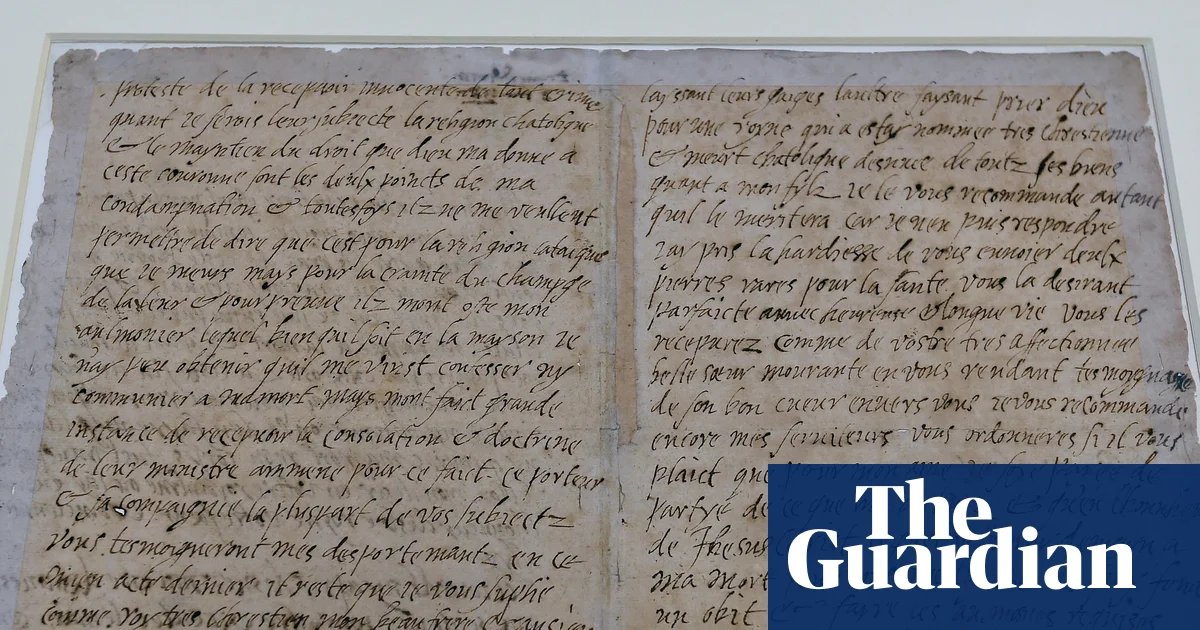 proteste de la recepvoir innocente de tout crime
quant je serois leur subjecte la religion chatolique
& le mayntien du droit que dieu ma donne a
ceste couronne sont les deulx poincts de ma
condampnation & toutesfoys ilz ne me veullent
permettre de dire que cest pour la religion catolique
que je meurs mays pour la crainte du champge
de la leur & pour preuve ilz mont oste mon
aulmonier lequel bien quil soit en la mayson je
nay peu obtenir quil me vinst confesser ny
communier a ma mort mays mont faict grande
instance de recepvoir la consolation & doctrine
de leur ministre ammene pour ce faict. ce porteur
& sa compaignee la pluspart de vos subjectz
vous tesmoigneront mes desportemantz en ce
myen acte dernier il reste que je vous suplie
comme roy tres chrestien mon beau frere & ancien
layssant leurs guiges laultre faysant prier dieu
pour une royne qui a estay nommee tres chrestienne
& meurt chatolique desnuee de toutz ses biens
quant a mon fylz je le vous recommande autant
quil le meritera car je nen puis respondre
jay pris la hardiesse de vous envoier deulx
pierres rares pour la sante vous la desirant
parfaicte avvec heureuse & longue vie vous les
recepvrez comme de vostre tres affectionnee
belle soeur mourante en vous rendant tesmoygnasge
de son bon cueur envers vous je vous recommande
encore mes serviteurs vous ordonneres si il vous
plaict que
partye de
de Jhesus
ma mort
un obit
The
Guardian